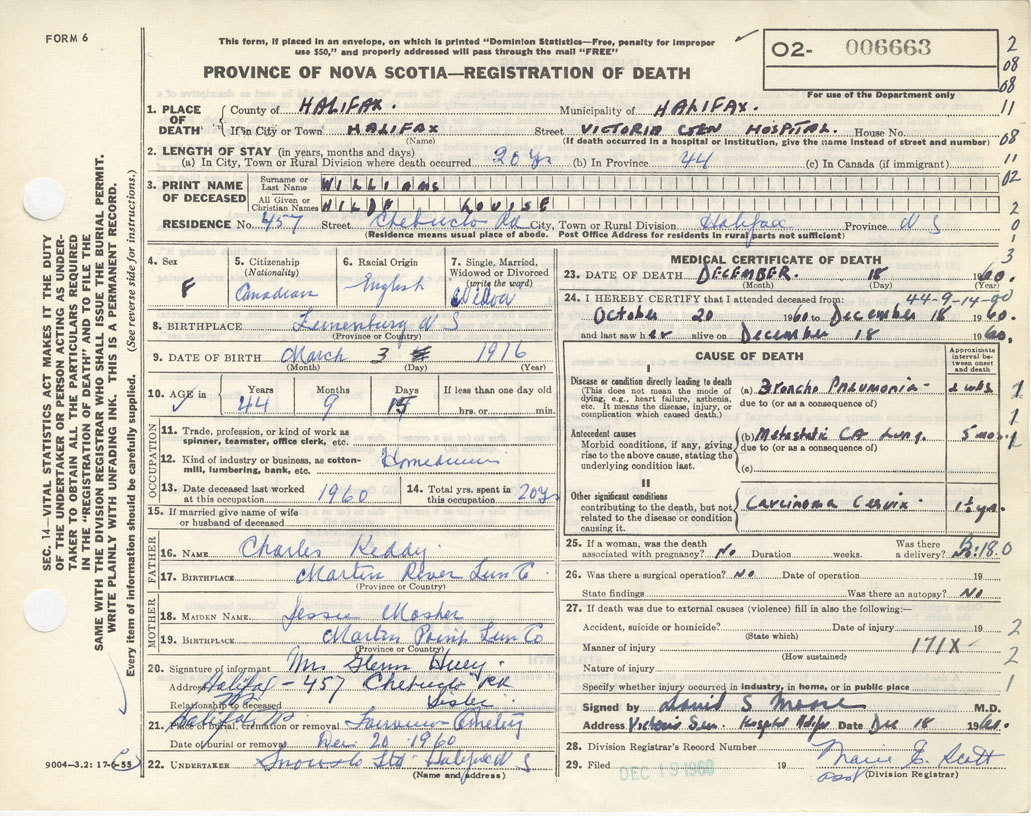 FORM 6
This form, if placed in an envelope, on which is printed "Dominion Statistics—Free, penalty for improper
use $50," and properly addressed will pass through the mail "FREE"
PROVINCE OF NOVA SCOTIA—REGISTRATION OF DEATH
02- 006663
For use of the Department only
2
08
08
11
08
11
02
2
0
1
3
SEC. 14—VITAL STATISTICS ACT MAKES IT THE DUTY
OF THE UNDERTAKER OR PERSON ACTING AS UNDER-
TAKER TO OBTAIN ALL THE PARTICULARS REQUIRED
IN THE "REGISTRATION OF DEATH" AND TO FILE THE
SAME WITH THE DIVISION REGISTRAR WHO SHALL ISSUE THE BURIAL PERMIT.
WRITE PLAINLY WITH UNFADING INK. THIS IS A PERMANENT RECORD.
Every item of information should be carefully supplied. (See reverse side for instructions.)
1. PLACE OF DEATH County of HALIFAX. Municipality of HALIFAX.
If in City or Town HALIFAX Street VICTORIA GEN HOSPITAL. House No.
(Name) (If death occurred in a hospital or institution, give the name instead of street and number)
2. LENGTH OF STAY (in years, months and days)
(a) In City, Town or Rural Division where death occurred 20 yrs (b) In Province 44 (c) In Canada (if immigrant)
3. PRINT NAME OF DECEASED Surname or Last Name WILLIAMS
All Given or Christian Names HILDA LOUISE
RESIDENCE No. 457 Street Chebucto Rd City, Town or Rural Division Halifax Province N S
(Residence means usual place of abode. Post Office Address for residents in rural parts not sufficient)
4. Sex F
5. Citizenship (Nationality) Canadian
6. Racial Origin English
7. Single, Married, Widowed or Divorced (write the word) Widow
8. BIRTHPLACE Lunenburg N S
(Province or Country)
9. DATE OF BIRTH March 3 1916
(Month) (Day) (Year)
10. AGE in Years 44 Months 9 Days 15 If less than one day old hrs. or min.
OCCUPATION
11. Trade, profession, or kind of work as spinner, teamster, office clerk, etc.
12. Kind of industry or business, as cotton-mill, lumbering, bank, etc.
13. Date deceased last worked at this occupation 1960
14. Total yrs. spent in this occupation 20 yrs
15. If married give name of wife or husband of deceased
FATHER
16. NAME Charles Keddy
17. BIRTHPLACE Martin River Lun Co
(Province or Country)
MOTHER
18. MAIDEN NAME Jessie Mosher
19. BIRTHPLACE Martin Point Lun Co
(Province or Country)
20. Signature of informant Mrs Glenn Huey
Address Halifax - 457 Chebucto Rd
Relationship to deceased Sister
21. Place of burial, cremation or removal Fairview Cemetery
Halifax NS
Date of burial or removal Dec. 20 1960
22. UNDERTAKER Snows Ltd Halifax N S
(Name and address)
9004—3.2: 17-6-55
MEDICAL CERTIFICATE OF DEATH
23. DATE OF DEATH DECEMBER 18 1960.
(Month) (Day) (Year)
24. I HEREBY CERTIFY that I attended deceased from: 44-9-14-90
October 20 1960 to December 18 1960.
and last saw her alive on December 18 1960.
CAUSE OF DEATH
Approximate interval between onset and death
I
Disease or condition directly leading to death
(This does not mean the mode of dying, e.g., heart failure, asthenia, etc. It means the disease, injury, or complication which caused death.)
(a) Broncho Pneumonia - 2 wks
due to (or as a consequence of)
1
1
1
Antecedent causes
Morbid conditions, if any, giving rise to the above cause, stating the underlying condition last.
(b) Metastatic CA Lung. 5 mo.
due to (or as a consequence of)
(c)
II
Other significant conditions
contributing to the death, but not related to the disease or condition causing it.
Carcinoma Cervix 1½ yr.
25. If a woman, was the death associated with pregnancy? No Duration weeks. Was there a delivery? No
18.0
26. Was there a surgical operation? No Date of operation 19
State findings Was there an autopsy? No
27. If death was due to external causes (violence) fill in also the following:—
Accident, suicide or homicide? Date of injury 19
(State which)
2
Manner of injury 171X-
(How sustained)
2
Nature of injury
Specify whether injury occurred in industry, in home, or in public place
1
Signed by David S Moore M.D.
Address Victoria Gen. Hospital Halifax Date Dec 18 1960.
28. Division Registrar's Record Number
29. Filed DEC 19 1960 19 Marie E. Scott
asst (Division Registrar)